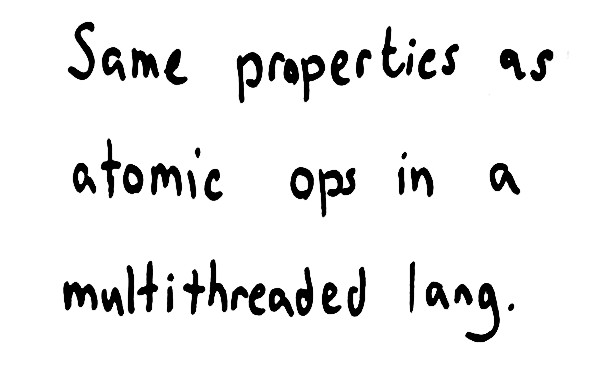 Same properties as
atomic ops in a
multithreaded lang.